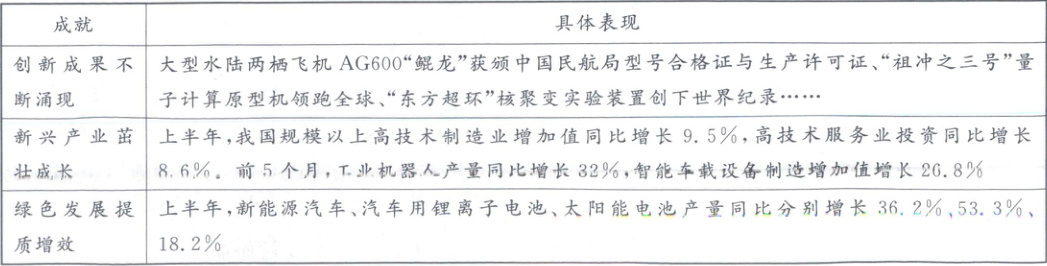 成就
具体表现
创新成果不
断涌现
大型水陆两栖飞机AG600“鲲龙”获颁中国民航局型号合格证与生产许可证、“祖冲之三号”量
子计算原型机领跑全球、“东方超环”核聚变实验装置创下世界纪录……
新兴产业茁
壮成长
上半年,我国规模以上高技术制造业增加值同比增长9.5%,高技术服务业投资同比增长
8.6%。前5个月,工业机器人产量同比增长32%,智能车载设备制造增加值增长26.8%
绿色发展提
质增效
上半年,新能源汽车、汽车用锂离子电池、太阳能电池产量同比分别增长36.2%、53.3%、
18.2%